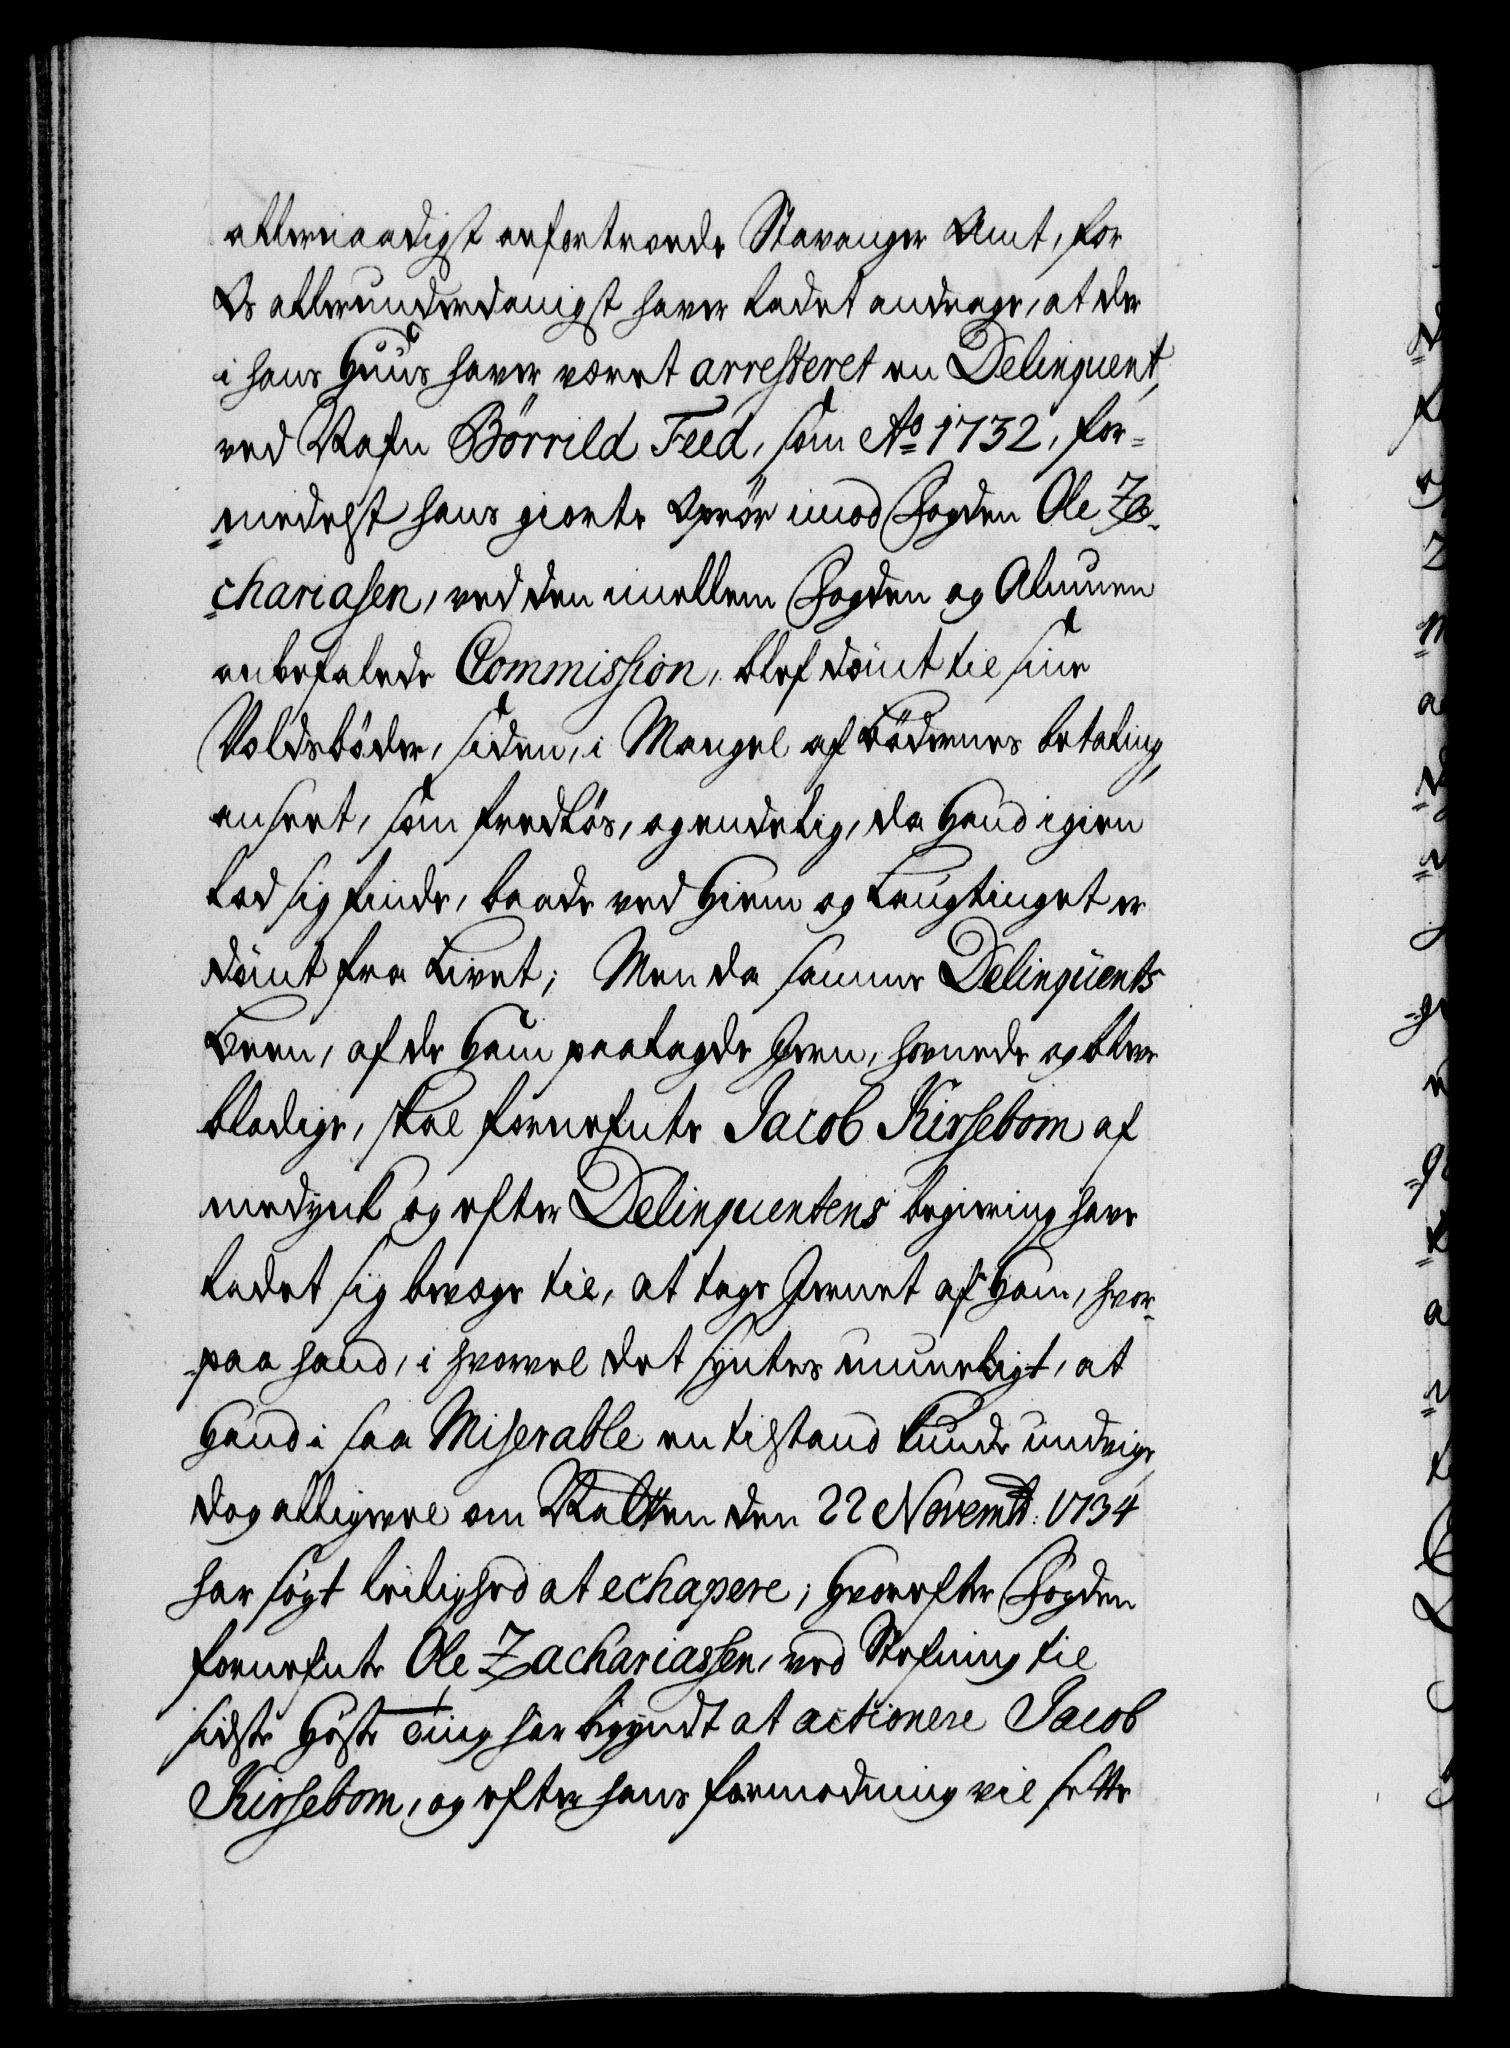 allernaadigst anfortroede Stavanger Amt, for
Os allerunderdanigst haver ladet andrage, at der
i hans Huus haver været arresteret en Delinquent,
ved Nafn Börrild Feed, som Ao 1732, for=
=medelst hans giorte Oprör imod Fogden Ole Za=
=chariasen, ved den imellem Fogden og Almuen
anbefalede Commission, blef dömt til sine
Voldsböder, siden, i Mangel af Bödernes betaling,
anseet, som fredlös, og endelig, da Hand igien
lod sig finde, baade ved Hiem og Laugtinget er
dömt fra Livet; Men da samme Delinqüents
Been, af de Ham paalagde Jern, hovnede og bleve
blodige, skal fornefnte Jacob Kirsebom af
medynk og efter Delinquentens begiering have
ladet sig bevæge til, at tage Jernet af Ham, hvor=
=paa hand, i hvorvel det syntes umueligt, at
Hand i saa Miserable en tilstand kunde undvige,
dog alligevel om Natten den 22 Novembr: 1734
har sögt leilighed at echapere; Hvorefter Fogden
fornefnte Ole Zachariassen, ved Stefning til
sidste Höste Ting har begyndt at actionere Jacob
Kirsebom, og efter hans formodning vil sette